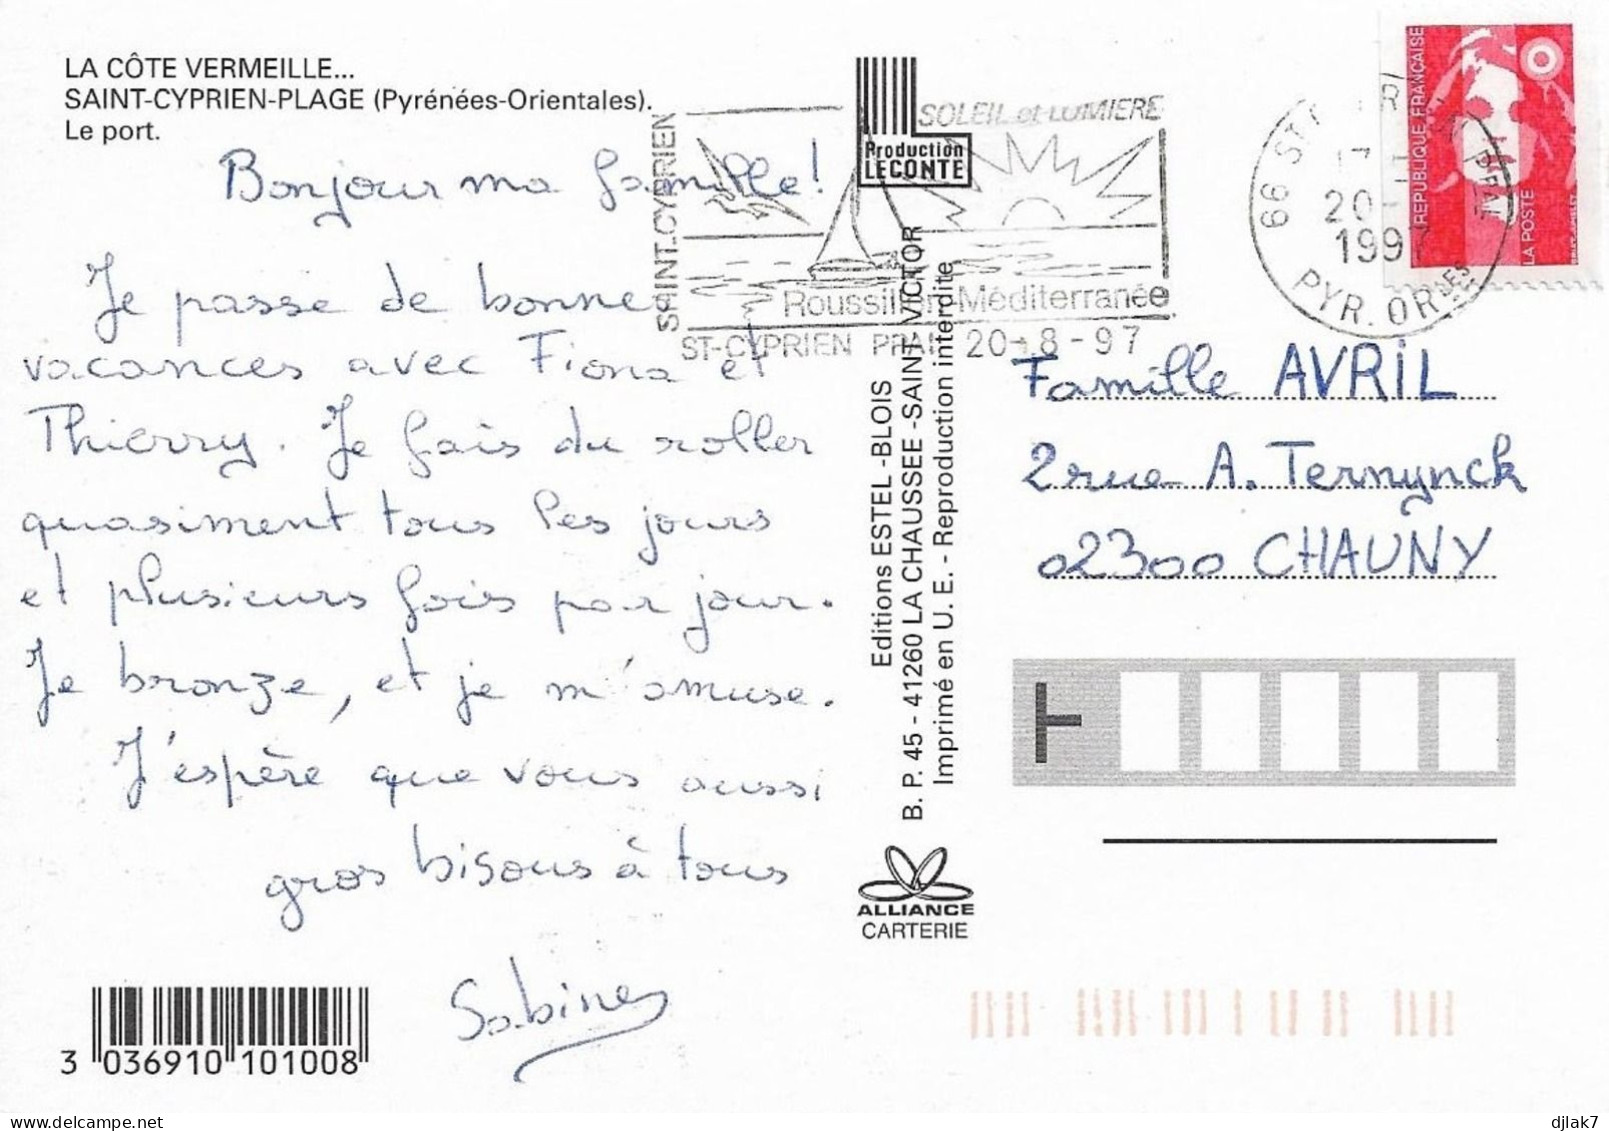 LA CÔTE VERMEILLE...
SAINT-CYPRIEN-PLAGE (Pyrénées-Orientales).
Le port.
Bonjour ma famille !
Je passe de bonne
vacances avec Fiona et
Thierry. Je fais du roller
quasiment tous les jours
et plusieurs fois par jour.
Je bronze, et je m'amuse.
J'espère que vous aussi
gros bisous à tous
Sabine
3 036910 101008
Production
LECONTE
SAINT-CYPRIEN
SOLEIL et LUMIERE
Roussillon-Méditerranée
ST-CYPRIEN PPAL 20-8-97
Editions ESTEL -BLOIS
B. P. 45 - 41260 LA CHAUSSEE -SAINT VICTOR
Imprimé en U. E. - Reproduction interdite
ALLIANCE
CARTERIE
66 ST
20-
1997
PYR. OR
REPUBLIQUE FRANÇAISE
LA POSTE
Famille AVRIL
2 rue A. Ternynck
02300 CHAUNY
Delcampe.net
djlak7